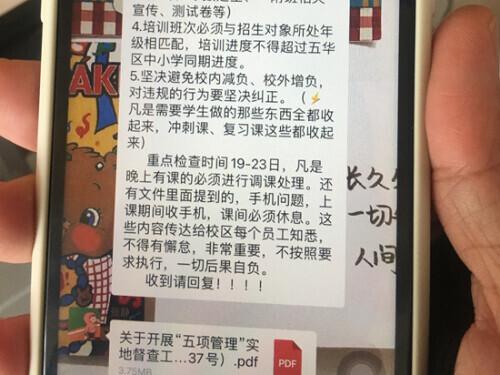 宣传、测试卷等）
4.培训班次必须与招生对象所处年
级相匹配，培训进度不得超过五华
区中小学同期进度。
5.坚决避免校内减负、校外增负，
对违规的行为要坚决纠正。（⚡
凡是需要学生做的那些东西全都收
起来，冲刺课、复习课这些都收起
来）
重点检查时间19-23日，凡是
晚上有课的必须进行调课处理。还
有文件里面提到的，手机问题，上
课期间收手机，课间必须休息。这
些内容传达给校区每个员工知悉，
不得有懈怠，非常重要，不按照要
求执行，一切后果自负。
收到请回复！！！！
长久
一切
人间
关于开展“五项管理”实
地督查工...37号）.pdf
3.75MB
PDF